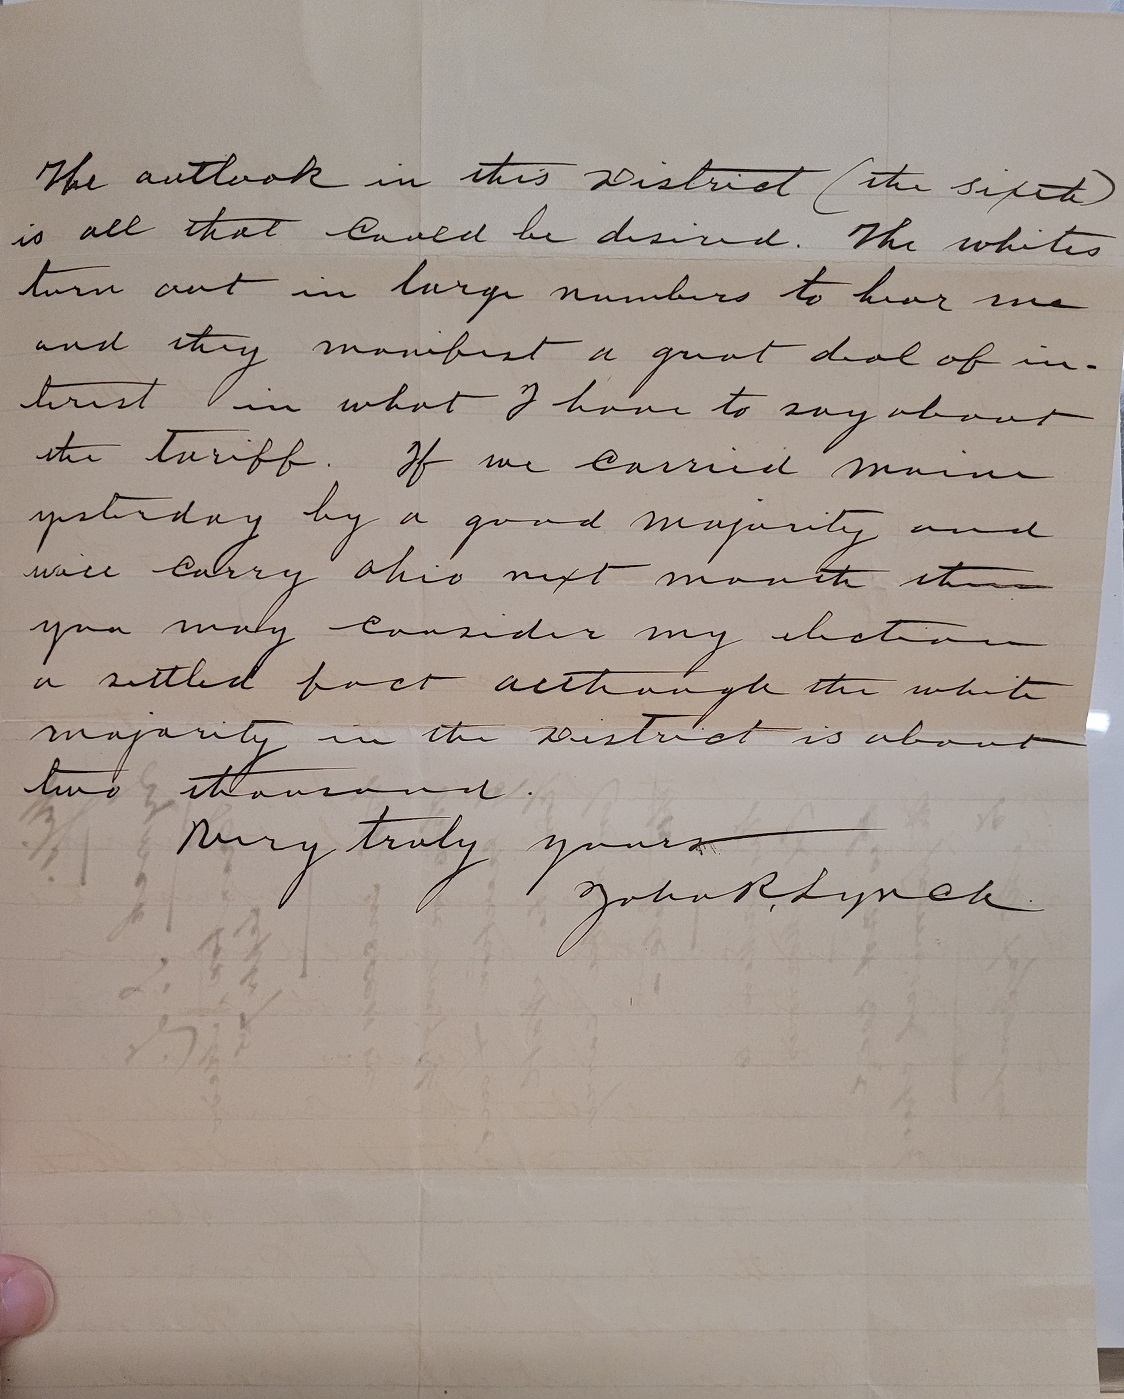 The outlook in this District (the sixth)
is all that could be desired. The whites
turn out in large numbers to hear me
and they manifest a great deal of in-
terest in what I have to say about
the tariff. If we carried Maine
yesterday by a good majority and
will carry Ohio next month then
you may consider my election
a settled fact although the white
majority in the District is about
two thousand.
Very truly yours
John R. Lynch